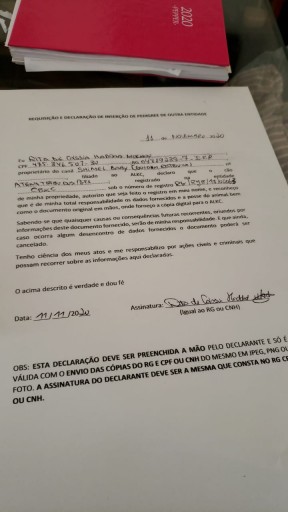 2020
REQUISIÇÃO E DECLARAÇÃO DE INSERÇÃO DE PEDIGREE DE OUTRA ENTIDADE
11 de NOVEMBRO 2020
Eu RITA DE CASSIA
CPF
proprietário do canil SHAMEL BABY
filiado ao ALEC, declaro que o cão
registrado na entidade
CBKC sob o número de registro
de minha propriedade, autorizo que seja feito o registro em meu nome, e reconheço
que é de minha total responsabilidade os dados fornecidos e a posse do animal bem
como o documento original em mãos, onde forneço a cópia digital para o ALEC.
Sabendo se que quaisquer causas ou consequências futuras recorrentes, oriundos por
informações deste documento fornecido, serão de minha responsabilidade. E que ainda,
caso ocorra algum desencontro de dados fornecidos o documento poderá ser
cancelado.
Tenho ciência dos meus atos e me responsabilizo por ações cíveis e criminais que
possam recorrer sobre as informações aqui declaradas.
O acima descrito é verdade e dou fé
Data: 11/11/2020
Assinatura: Rita de Cassia
(Igual ao RG ou CNH)
OBS: ESTA DECLARAÇÃO DEVE SER PREENCHIDA A MÃO PELO DECLARANTE E SÓ É
VÁLIDA COM O ENVIO DAS CÓPIAS DO RG E CPF OU CNH DO MESMO EM JPEG, PNG OU
FOTO. A ASSINATURA DO DECLARANTE DEVE SER A MESMA QUE CONSTA NO RG CPF
OU CNH.